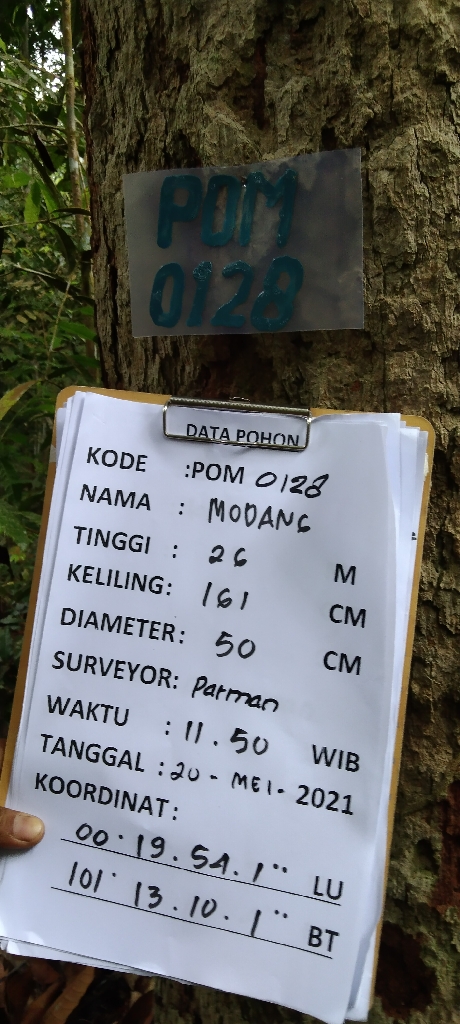 POM
0128
DATA POHON
KODE :POM 0128
NAMA : MODANG
TINGGI : 26 M
KELILING: 161 CM
DIAMETER: 50 CM
SURVEYOR: Parman
WAKTU : 11.50 WIB
TANGGAL : 20 - MEI - 2021
KOORDINAT:
00° 19. 54. 1" LU
101° 13. 10. 1" BT